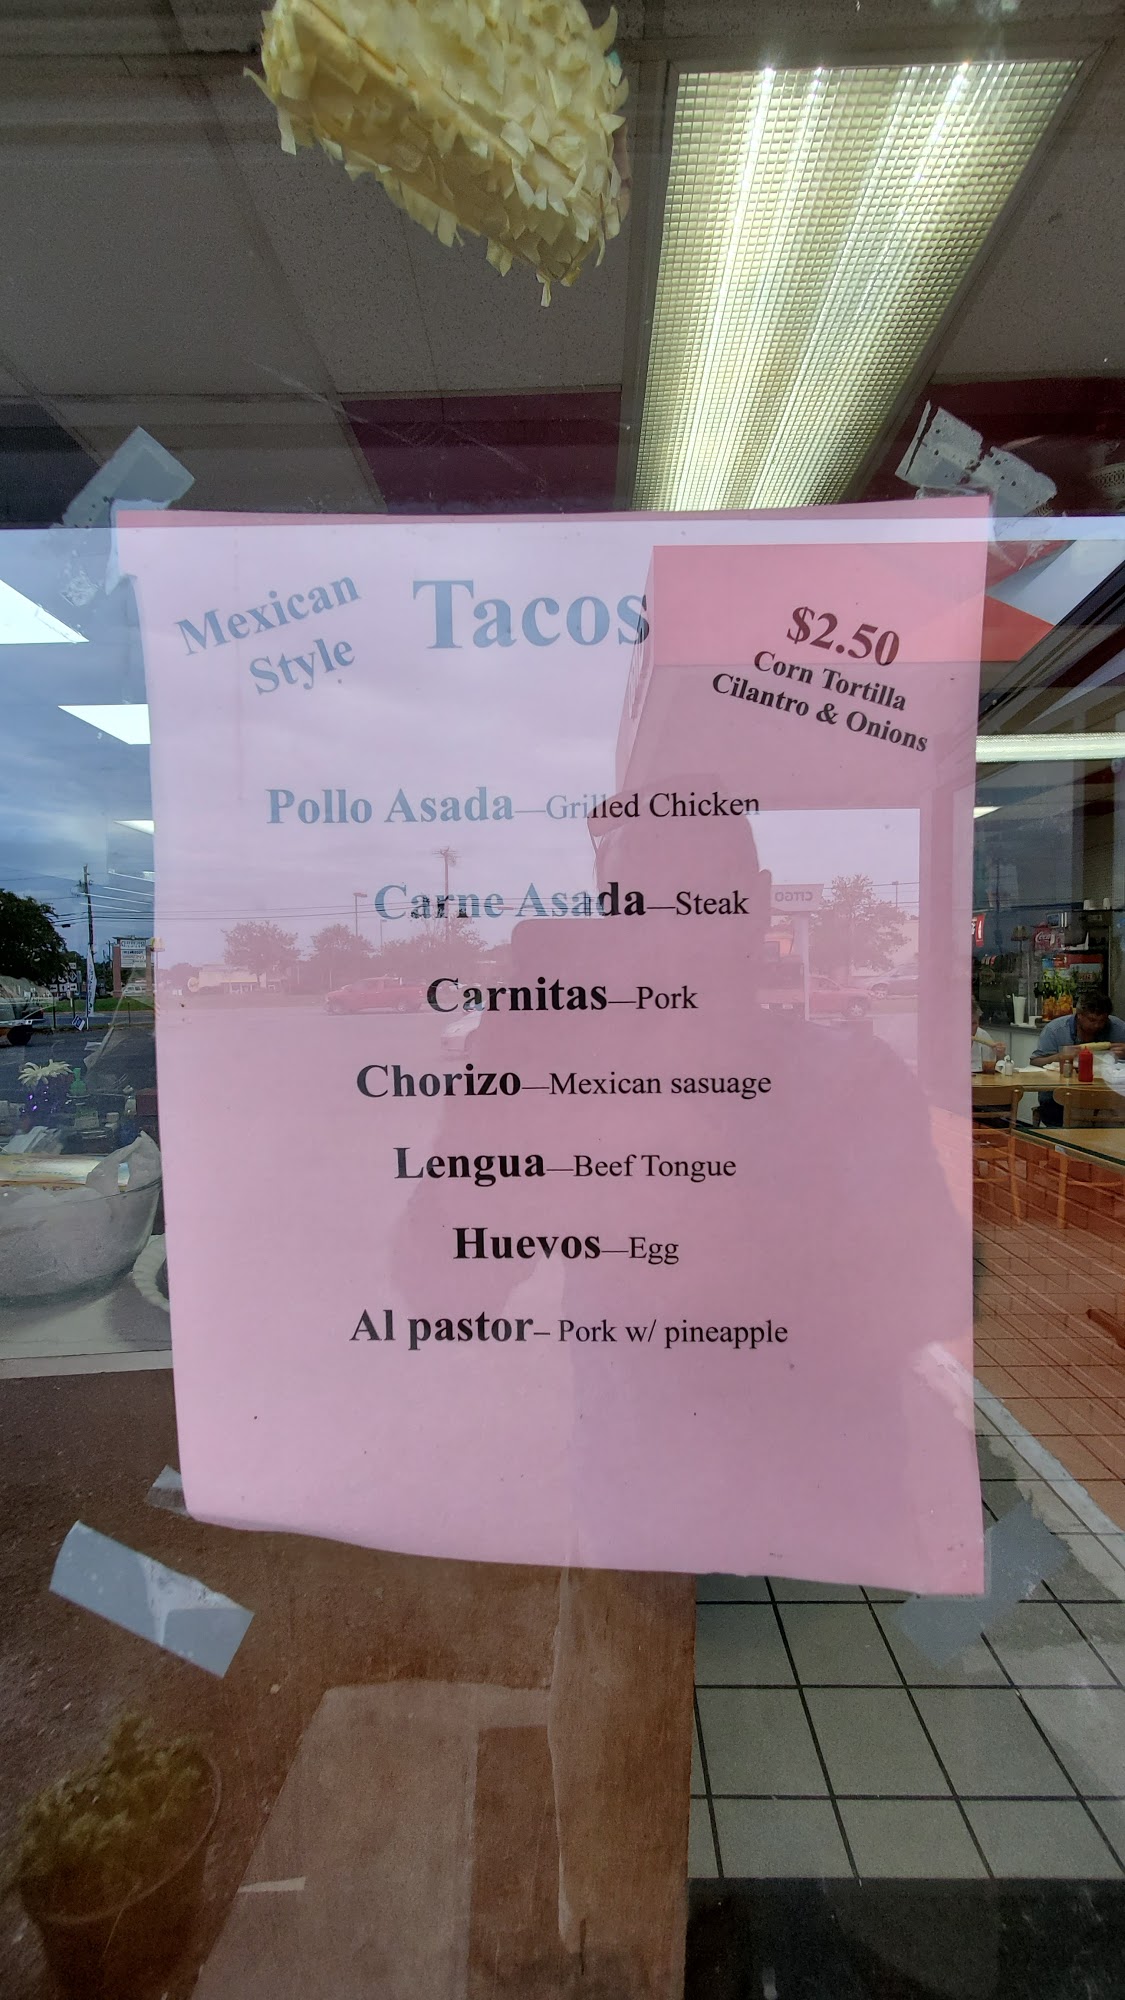 Mexican
Style
Tacos
$2.50
Corn Tortilla
Cilantro & Onions
Pollo Asada—Grilled Chicken
Carne Asada—Steak
Carnitas—Pork
Chorizo—Mexican sasuage
Lengua—Beef Tongue
Huevos—Egg
Al pastor– Pork w/ pineapple
CITGO